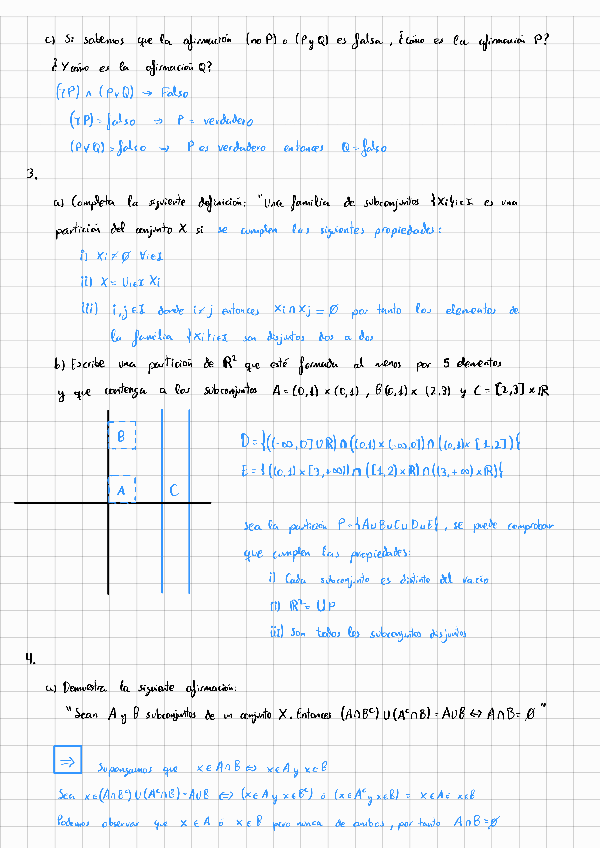 c) Si sabemos que la afirmación (no P) o (P y Q) es falsa, ¿cómo es la afirmación P?
¿Y cómo es la afirmación Q?
(¬P) ∧ (P∨Q) → Falso
(¬P)= falso ⇒ P = verdadero
(P∨Q)= falso → P es verdadero entonces Q=falso
3.
a) Completa la siguiente definición: "Una familia de subconjuntos {Xi}i∈I es una
partición del conjunto X si se cumplen las siguientes propiedades:
i) Xi ≠ ∅ ∀i∈I
ii) X = ∪i∈I Xi
iii) i,j∈I donde i≠j entonces Xi∩Xj = ∅ por tanto los elementos de
la familia {Xi}i∈I son disjuntos dos a dos
b) Escribe una partición de ℝ² que esté formada al menos por 5 elementos
y que contenga a los subconjuntos A = (0,1) × (0,1), B(0,1) × (2,3) y C = [2,3] × ℝ
B
A
C
D = {((-∞,0] ∪ ℝ) ∩ ((0,1) × (-∞,0]) ∩ ((0,1) × [1,2])}
E = {((0,1) × [3,+∞)) ∩ ([1,2) × ℝ) ∩ ((3,+∞) × ℝ)}
Sea la partición P = {A∪B∪C∪D∪E}, se puede comprobar
que cumplen las propiedades:
i) Cada subconjunto es distinto del vacío
ii) ℝ² = ∪P
iii) Son todos los subconjuntos disjuntos
4.
a) Demuestra la siguiente afirmación:
"Sean A y B subconjuntos de un conjunto X. Entonces (A∩Bᶜ) ∪ (Aᶜ∩B) = A∪B ⇔ A∩B = ∅"
⇒ Supongamos que x∈A∩B ⇔ x∈A y x∈B
Sea x∈(A∩Bᶜ) ∪ (Aᶜ∩B) = A∪B ⇔ (x∈A y x∈Bᶜ) ó (x∈Aᶜ y x∈B) = x∈A ó x∈B
Podemos observar que x∈A o x∈B pero nunca de ambos, por tanto A∩B=∅